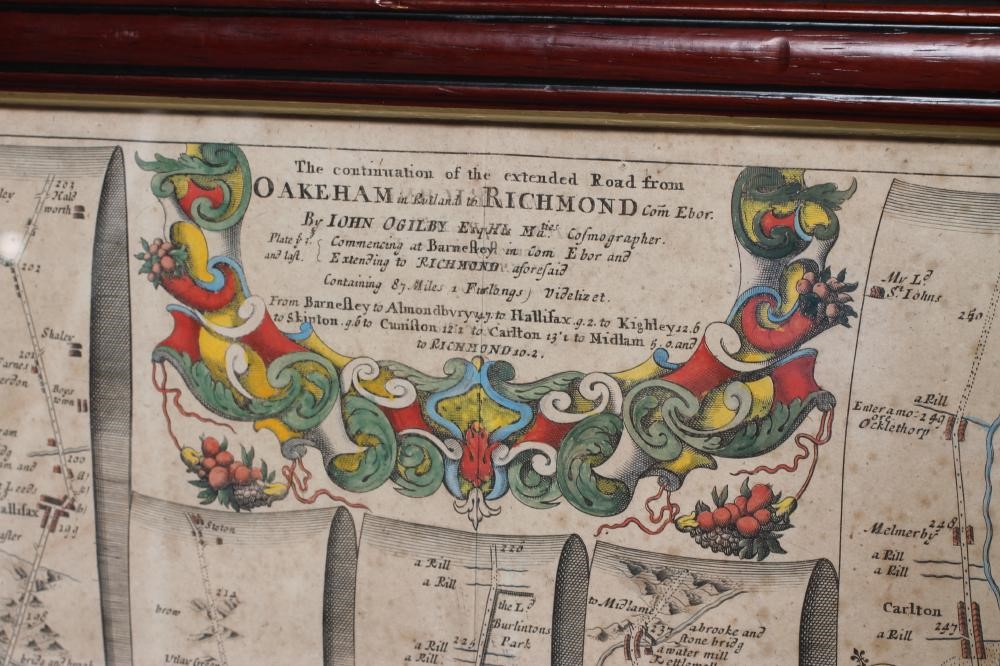 The continuation of the extended Road from
OAKEHAM in Rutland to RICHMOND Com Ebor.
By IOHN OGILBY Esq. His Maties Cosmographer.
Plate ye 1st. Commencing at Barnesley in Com Ebor and
and last. Extending to RICHMOND aforesaid
Containing 87 Miles 1 Furlongs; Videlizet.
From Barnesley to Almondbvry 14'7. to Hallifax. 9.2. to Kighley 12.6
to Skinton. 9.6 to Cuniston 12'2 to Carlton 13'1 to Midlam 5.0. and
to RICHMOND 10.2.
203
Hals
worth
202
Shaley
201
Boys
town
200
m and
Leeds
allifax
199
198
Stoton
214
brow
220
a Rill
a Rill
the Ld
Burlintons
Park
225
a Rill
a Rill
to Midlam
237
a brooke and
stone bridg
a water mill
Kettlewell
My Ld
St. Iohns
250
a Rill
Enter a mo:
ore
249
Ocklethorp
248
Melmerby
a Rill
a Rill
Carlton
247
a Rill